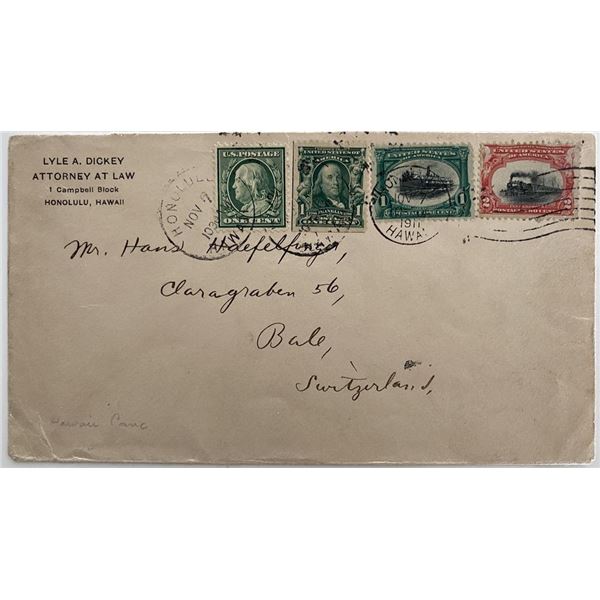 LYLE A. DICKEY
ATTORNEY AT LAW
1 Campbell Block
HONOLULU, HAWAII
U.S. POSTAGE
ONE CENT
UNITED STATES OF AMERICA
FRANKLIN
1 1
ONE CENT
UNITED STATES
OF AMERICA
1 POSTAGE ONE CENT 1
UNITED STATES
OF AMERICA
2 POSTAGE TWO CENTS 2
HONOLULU
NOV 7
NOV 7
1911
HAWAII
Mr. Hans
Claragraben 56,
Bale,
Switzerland,
Hawaii Pane